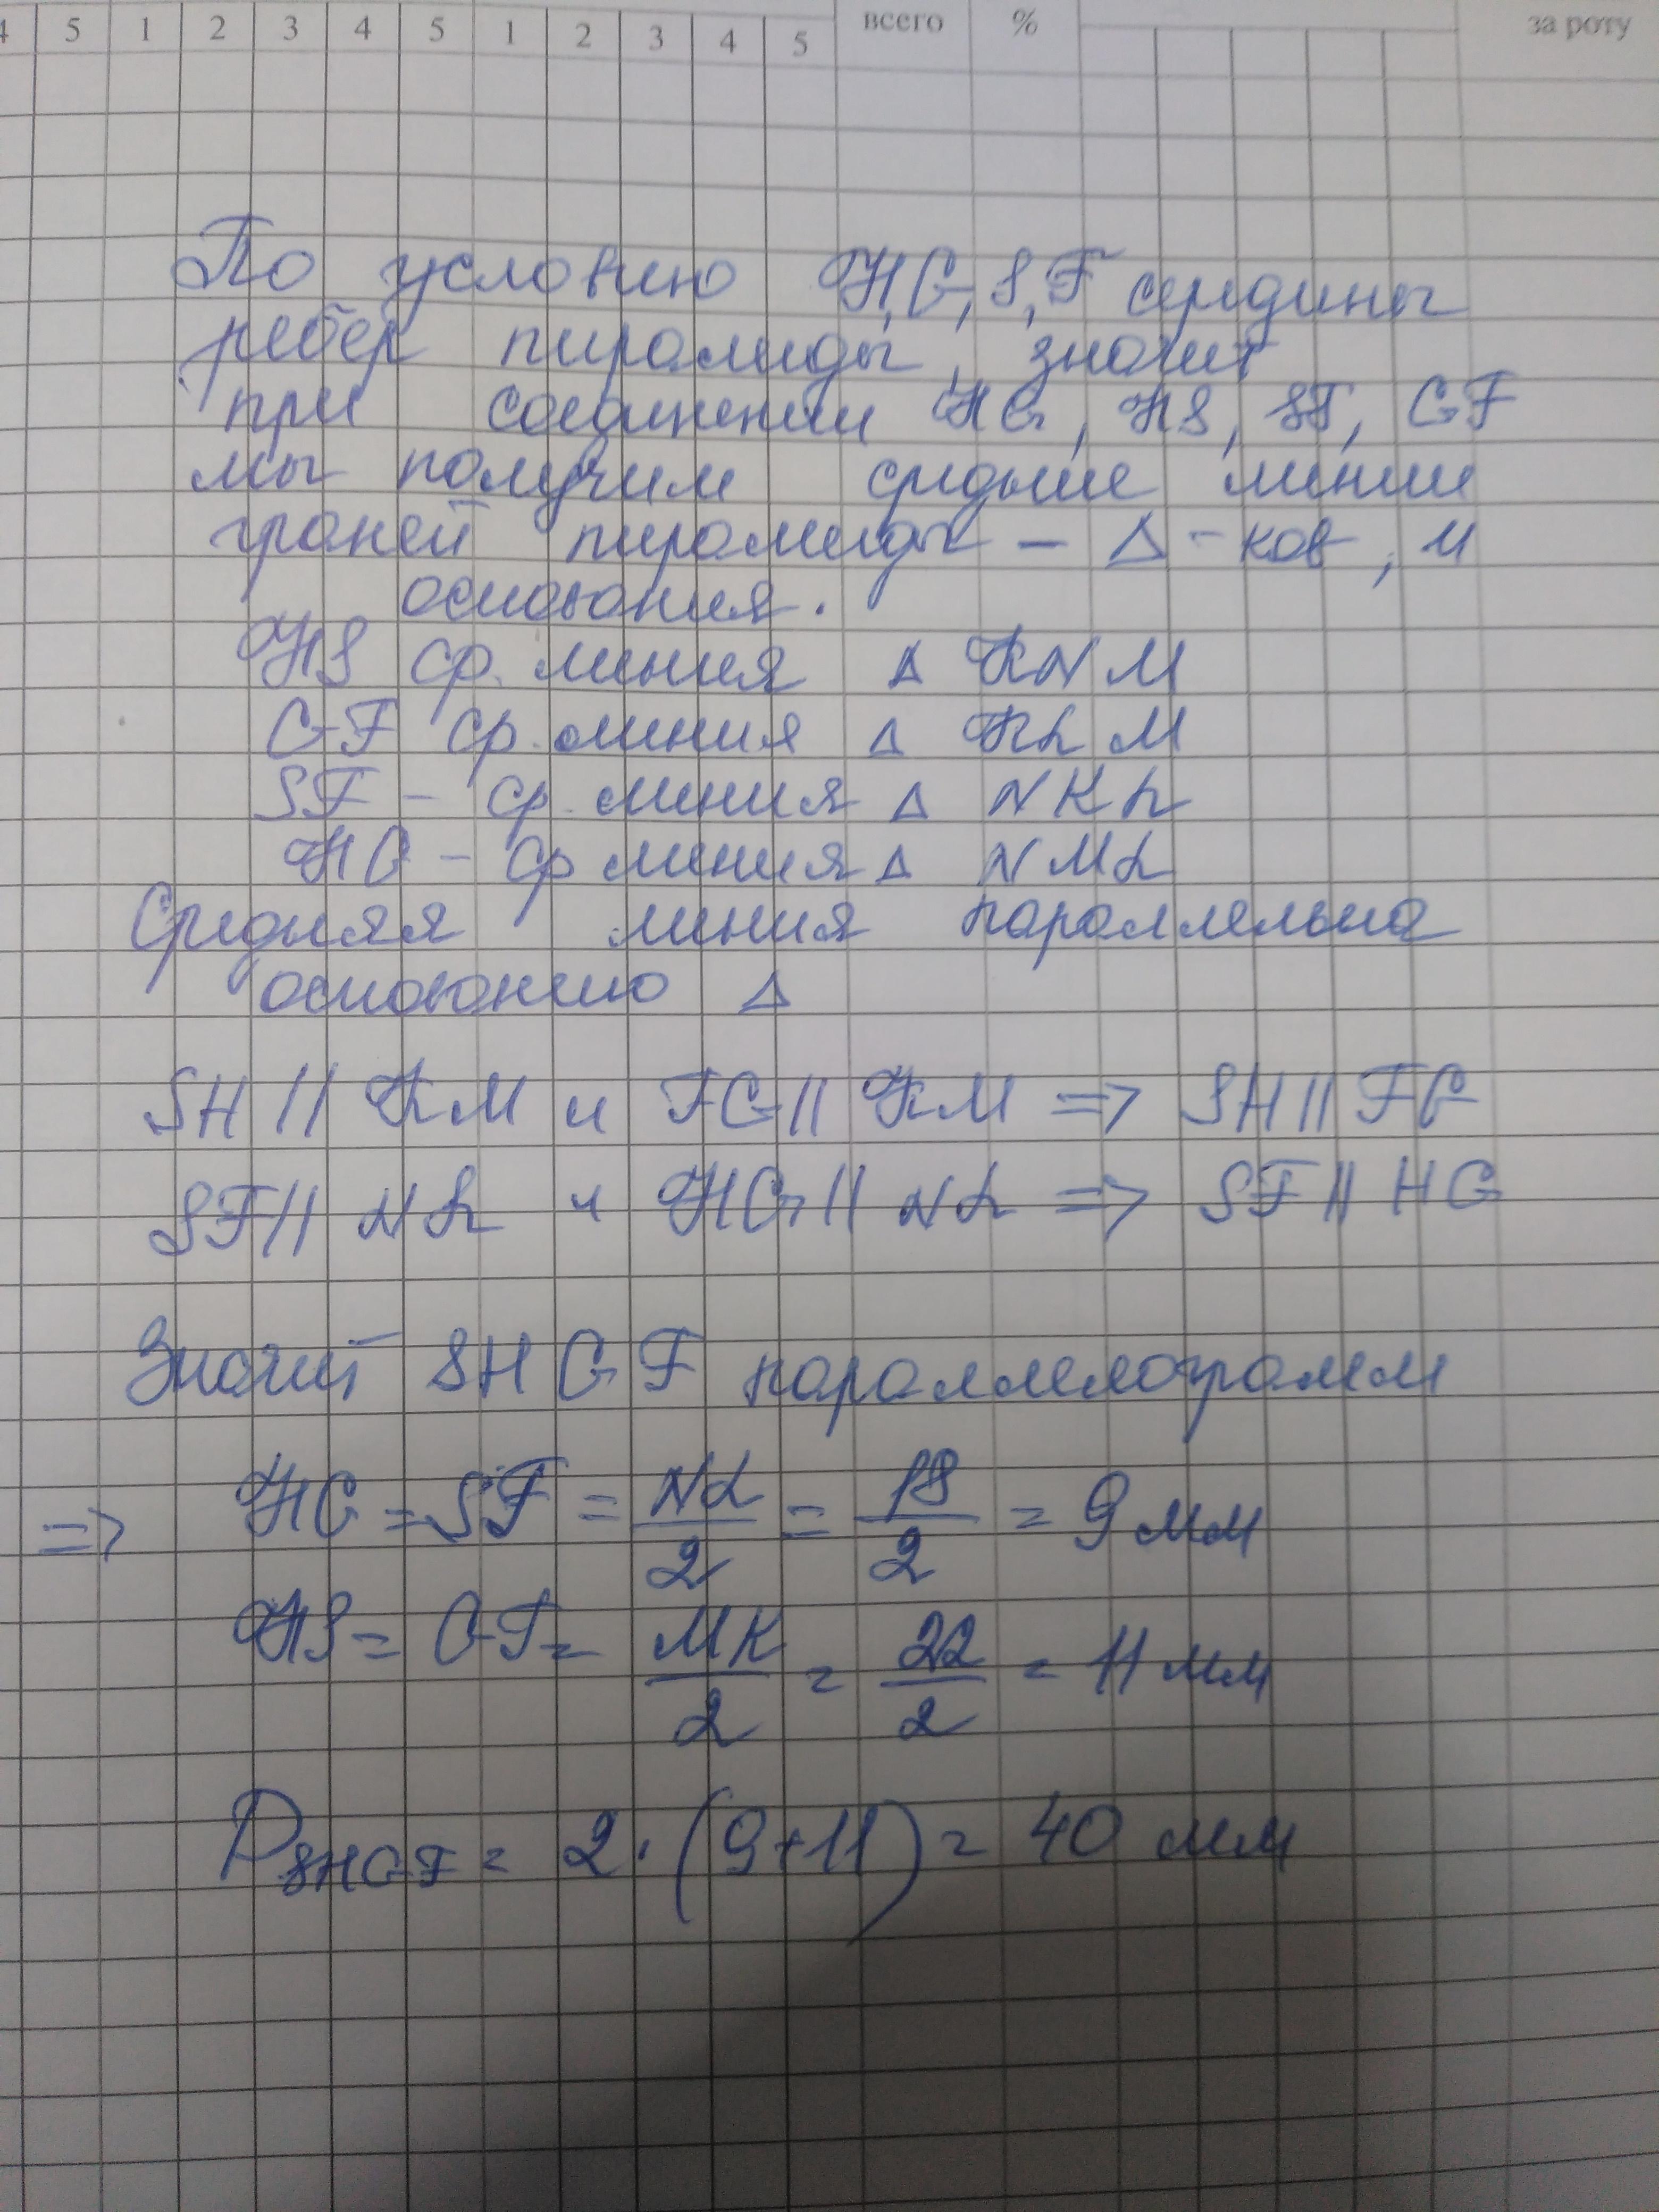 4 5 1 2 3 4 5 1 2 3 4 5 всего % за роту
По условию H, G, S, F середины
ребер пирамиды, значит
при соединении HG, HS, SF, GF
мы получим средние линии
граней пирамиды – Δ-ков, и
основания.
HS ср. линия Δ KNM
GF ср. линия Δ KLM
SF – ср. линия Δ NKL
HG – ср линия Δ NML
Средняя линия параллельна
основанию Δ
SH || KM и FG || KM => SH || FG
SF || NL и HG || NL => SF || HG
Значит SHGF параллелограмм
=> HG = SF = NL/2 = 18/2 = 9 мм
HS = GF = MK/2 = 22/2 = 11 мм
P SHGF = 2·(9+11) = 40 мм